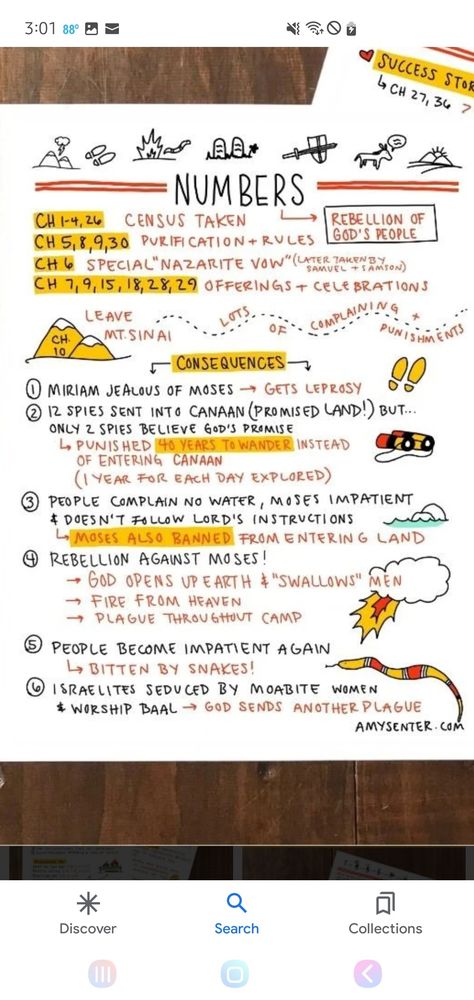 3:01 88°
SUCCESS STOR
↳ CH 27, 36
NUMBERS
CH 1-4, 26 CENSUS TAKEN
REBELLION OF
GOD'S PEOPLE
CH 5,8,9,30 PURIFICATION + RULES
CH 6 SPECIAL "NAZARITE VOW" (LATER TAKEN BY
SAMUEL + SAMSON)
CH 7,9,15,18,28,29 OFFERINGS + CELEBRATIONS
CH. 10
LEAVE
MT. SINAI
LOTS OF COMPLAINING + PUNISHMENTS
CONSEQUENCES
① MIRIAM JEALOUS OF MOSES → GETS LEPROSY
② 12 SPIES SENT INTO CANAAN (PROMISED LAND!) BUT...
ONLY 2 SPIES BELIEVE GOD'S PROMISE
↳ PUNISHED 40 YEARS TO WANDER INSTEAD
OF ENTERING CANAAN
(1 YEAR FOR EACH DAY EXPLORED)
③ PEOPLE COMPLAIN NO WATER, MOSES IMPATIENT
& DOESN'T FOLLOW LORD'S INSTRUCTIONS
↳ MOSES ALSO BANNED FROM ENTERING LAND
④ REBELLION AGAINST MOSES!
→ GOD OPENS UP EARTH & "SWALLOWS" MEN
→ FIRE FROM HEAVEN
→ PLAGUE THROUGHOUT CAMP
⑤ PEOPLE BECOME IMPATIENT AGAIN
↳ BITTEN BY SNAKES!
⑥ ISRAELITES SEDUCED BY MOABITE WOMEN
& WORSHIP BAAL → GOD SENDS ANOTHER PLAGUE
AMYSENTER.COM
Discover
Search
Collections